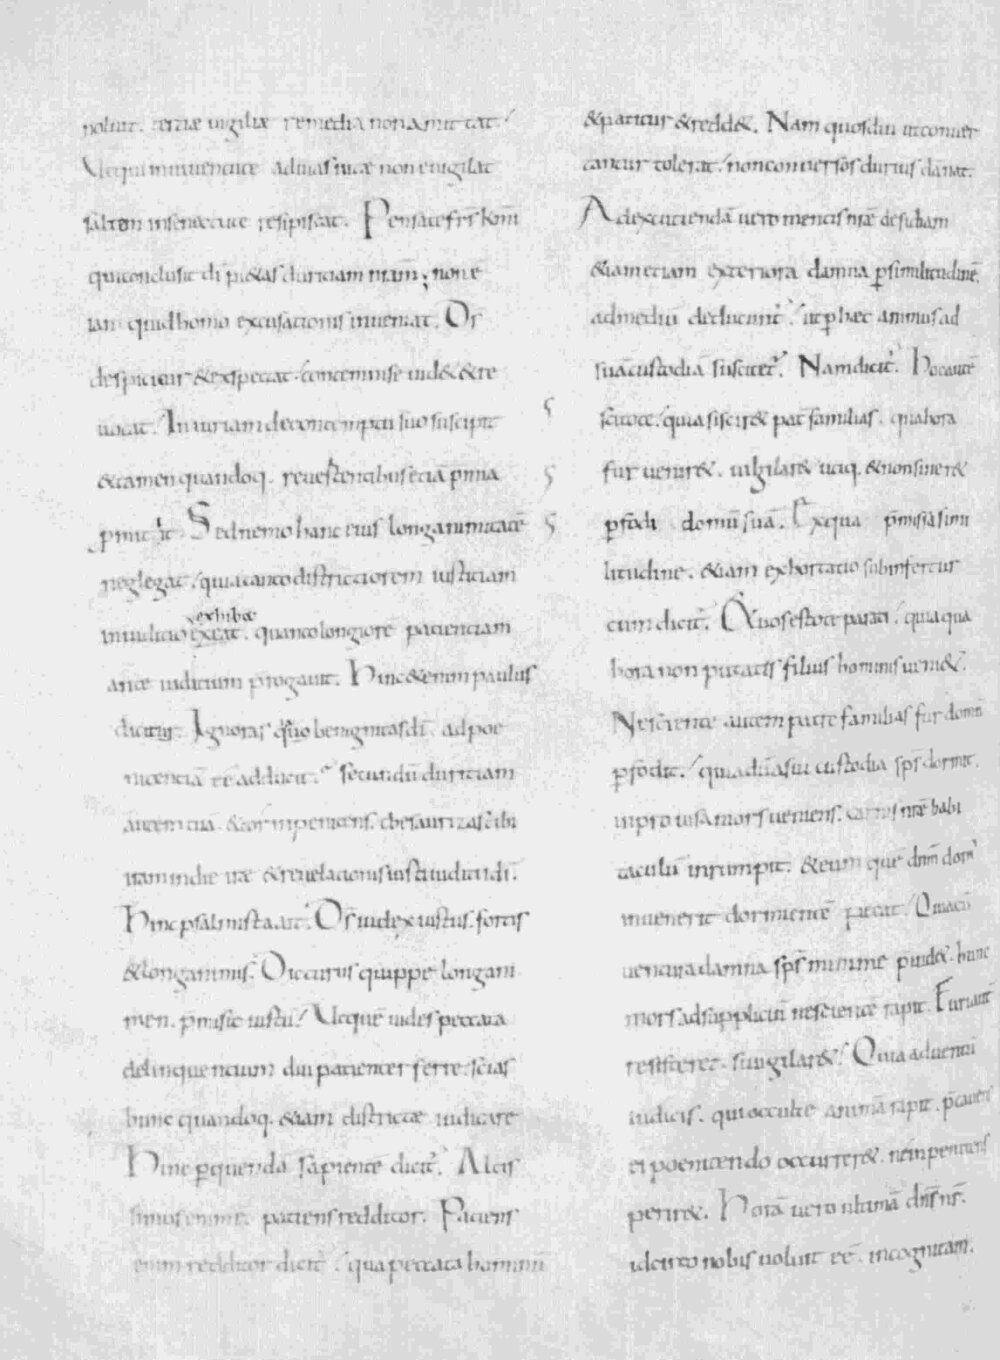 noluit. tertiæ uigiliæ remedia non amittat.
Ut qui in iuuentute ad uias uitæ non euigilat
saltem in senectute resipiscat. Pensate fr̄s k̄mi
qui conclusit dī pi&as duritiam nr̄am; non ē
iam quid homo excusationis inueniat. Ds̄
despicitur & exspectat. contemni se uid& & re
uocat. Iniuriam de contemptu suo suscipit
& tamen quandoq. reuertentibus etiā p̄mia
p̄mittit. Sed nemo hanc eius longanimitatē
neglegat. quia tanto districtiorem iustitiam
in iudicio exigat. exhibæ quanto longiorē patientiam
ante iuditium p̄rogauit. Hinc & enim paulus
dicit. Ignoras qm̄ benignitas dī. ad poe
nitentiā te adducit. secundū duritiam
autem tua. & cor inpenitens. thesaurizas tibi
iram in die iræ & reuelationis iusti iuditii dī.
Hinc psalmista ait. Ds̄ iudex iustus. fortis
& longanimis. Dicturus quippe longani
mem. p̄misit iustū. Ut quē uides peccata
delinquentium diu patienter ferre. scias
hunc quandoq. &iam districtæ iudicare
Hinc p̱ quendā sapientē dicit̄. Altis
simus enim ē. patiens redditor. Patiens
enim redditor dicit̄. quia peccata hominū
& patitur & redd&. Nam quos diu ut conuer
tantur tolerat. non conuersos durius dānat.
Ad excutiendā uero mentis nr̄æ desidiam
&iam etiam exteriora damna p̱ similitudinē
ad mediū deducunt̄. ut p̱ hæc animus ad
suā custodiā suscitet̄. Nam dicit̄. Hoc autē
scitote. quia si scir& pat̄familias. qua hora
fur uenir&. uigilar& utiq. & non siner&
p̱fodi domū suā. Ex qua p̄missa simi
litudine. &iam exhortatio subinfertur
cum dicit̄. Et uos estote parati. quia qua
hora non putatis filius hominis ueni&.
Nesciente autem patre familias fur domū
p̱fodit. quia dū a sui custodia sp̄s dormit.
inprouisa mors ueniens. carnis nr̄æ habi
taculū inrumpit. & eum quē dn̄m dom̄
inuenerit dormientē necat. Quia cū
uentura damna sp̄s minime p̄uid&. hunc
mors ad supplicium nescientē rapit. Furi autē
resisteret. si uigilar&. Quia aduentū
iudicis. qui occulte animā rapit. p̄cauens
ei poenitendo occurrer&. ne inpenitens
perir&. Horā uero ultimā dn̄s nr̄.
idcirco nobis uoluit eē. incognitam.